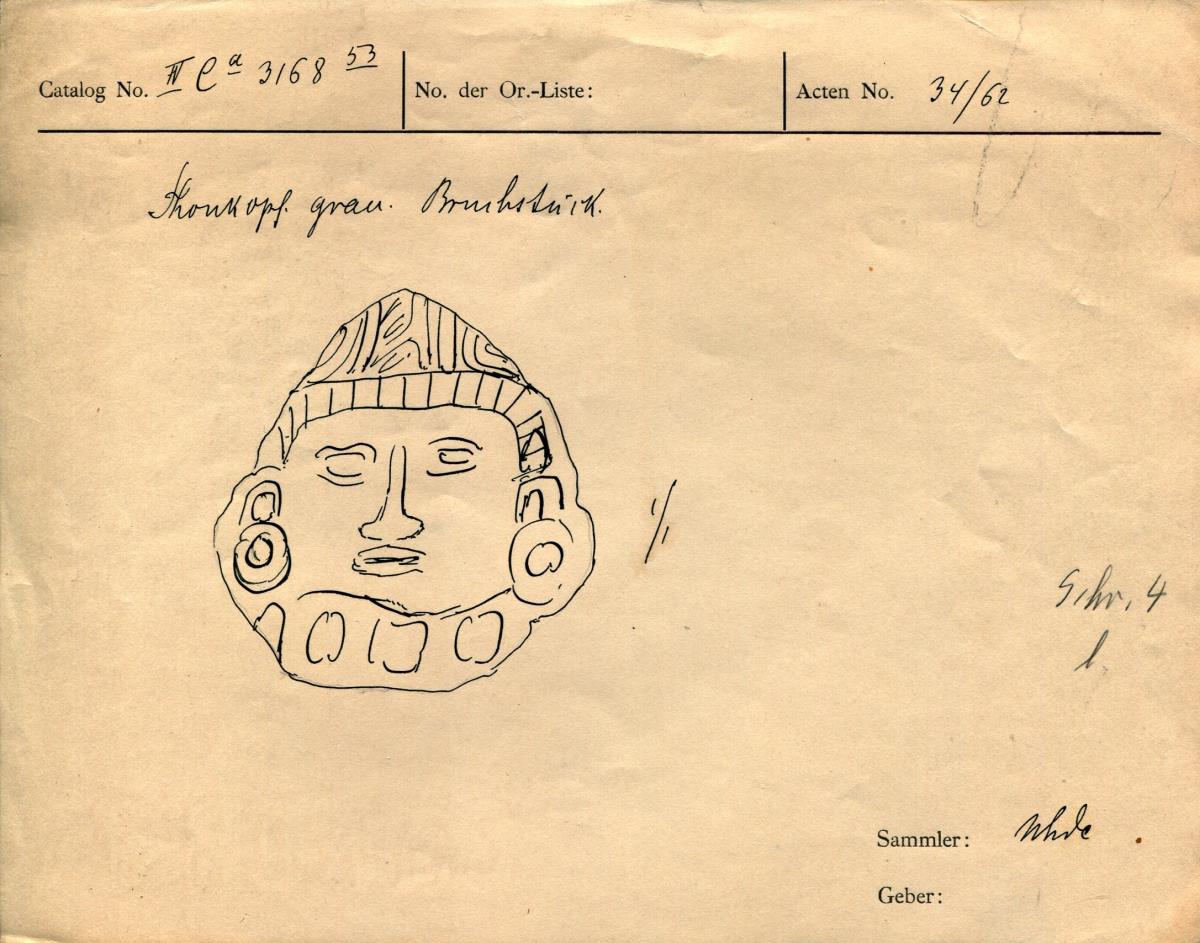 Catalog No. IV Ca 3168 53
No. der Or.-Liste:
Acten No. 34/62
Thonkopf. grau. Bruchstück.
1/1
Schr. 4
l.
Sammler: Uhde
Geber: